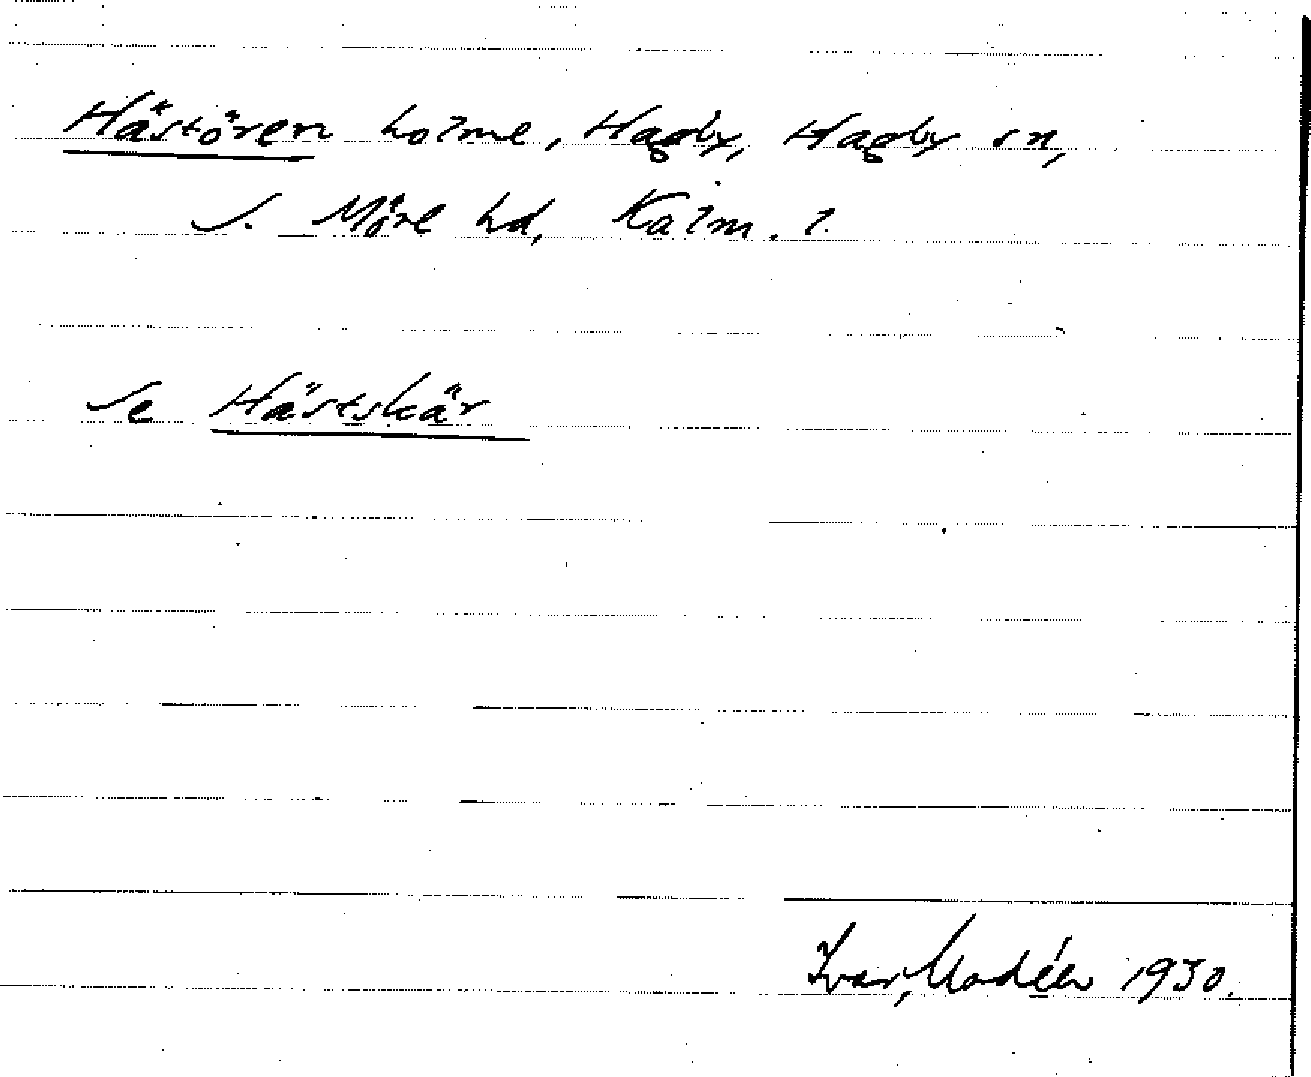 Hästören holme, Hagby, Hagby sn,
S. Möre hd, Kalm. l.
Se Hästskär
Ivar Modéer 1930.